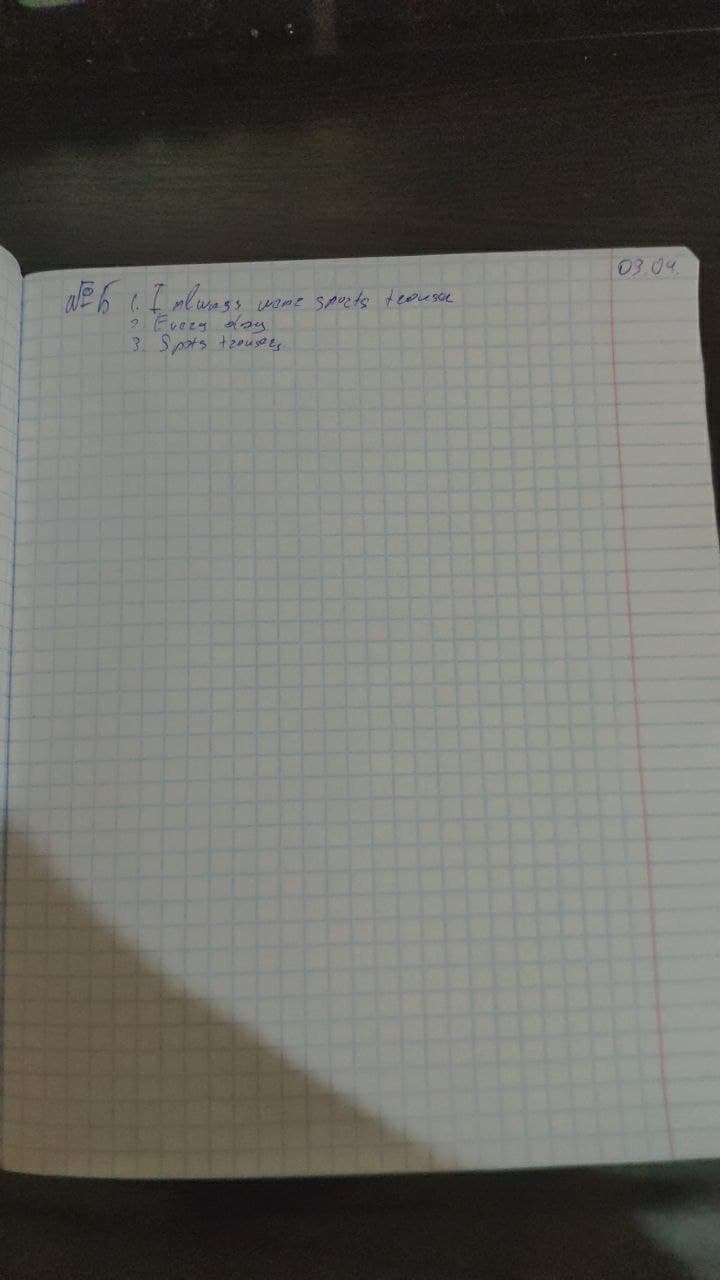 03.04.
№5 1. I always wear sports trouser
2 Every day
3. Spots trousers